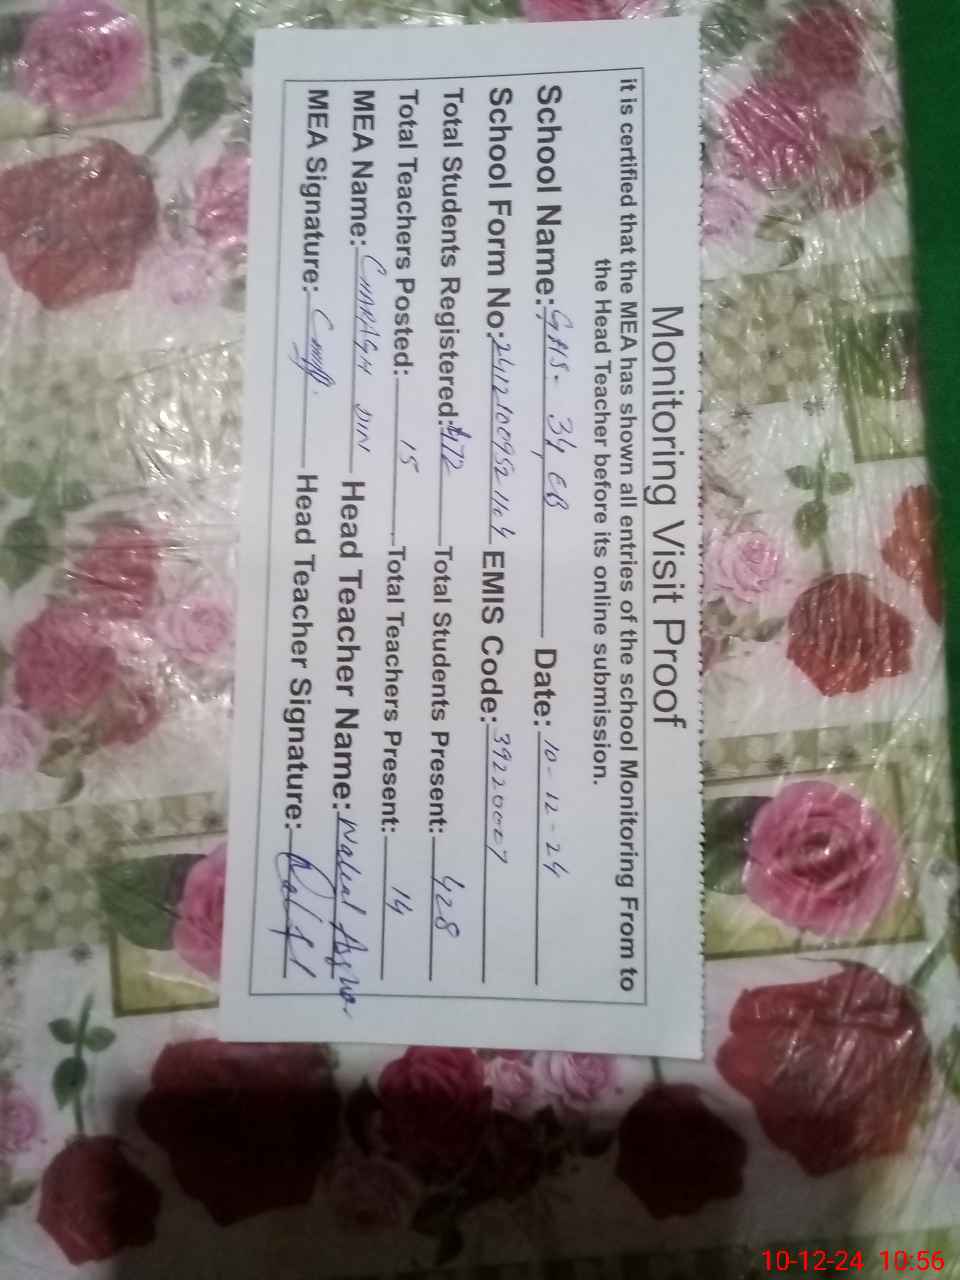 Monitoring Visit Proof
it is certified that the MEA has shown all entries of the school Monitoring From to
the Head Teacher before its online submission.
School Name: GHS- 34, EB Date: 10-12-24
School Form No: EMIS Code: 39220007
Total Students Registered: 472 Total Students Present: 428
Total Teachers Posted: 15 Total Teachers Present: 14
MEA Name: CHARAGH DIN Head Teacher Name:
MEA Signature: Head Teacher Signature:
10-12-24 10:56